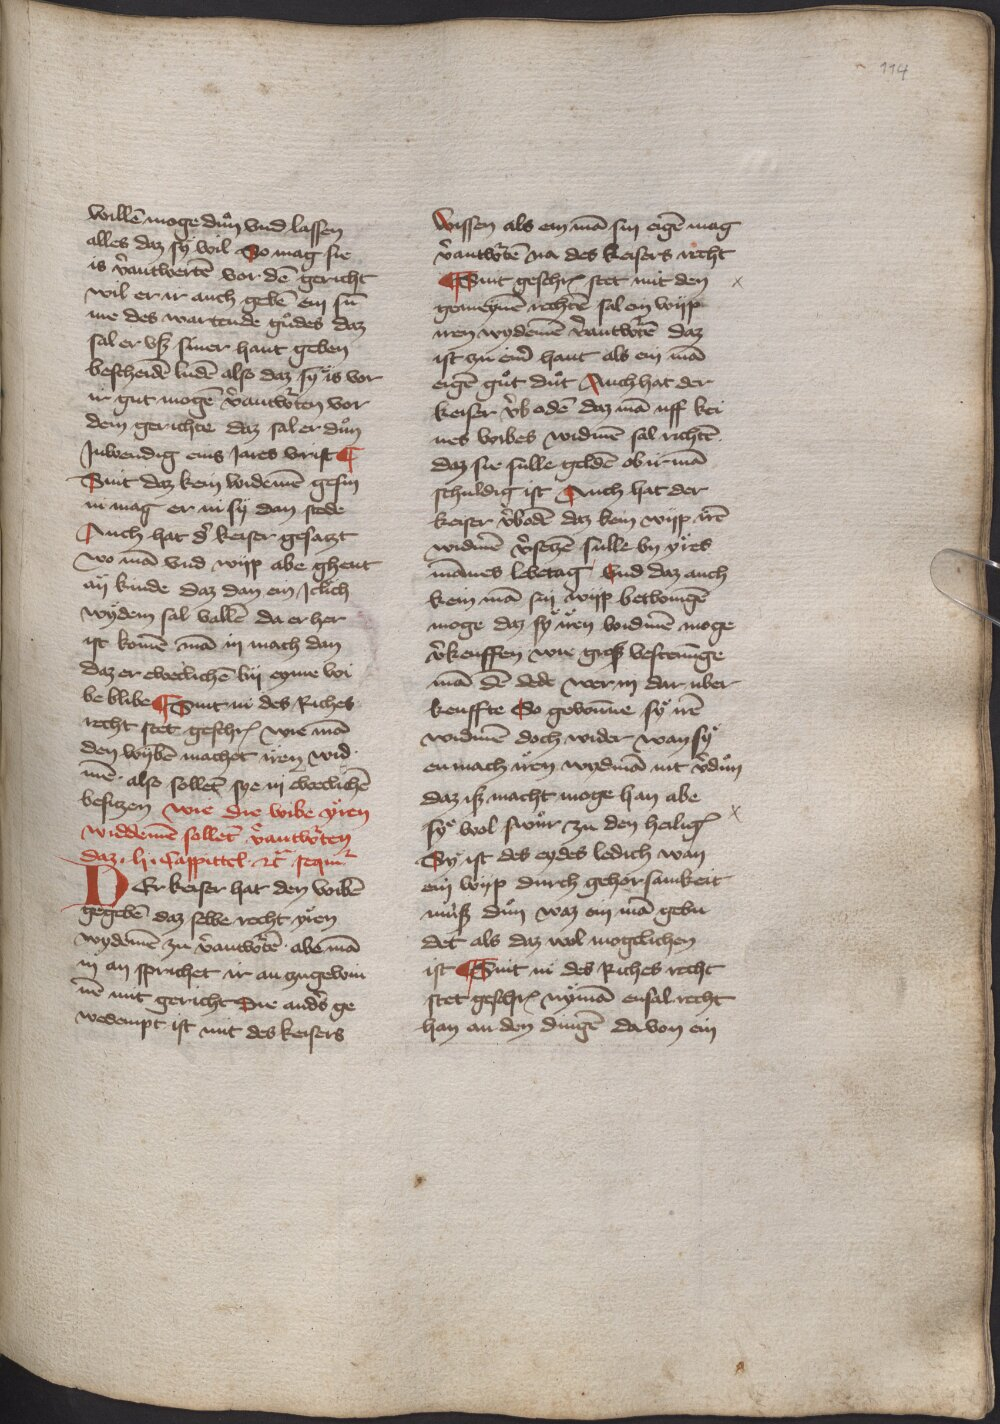 114
willē moge duͦn vnd lassen
alles daz sÿ wil So mag sie
is v̓antwertē vor dē gericht
wil er ir auch gebē ein sū
me des wartende guͦdes daz
sal er vß siner hant geben
bescheidē ludē also daz sÿ is vor
ir gut mogē v̓antw̓ten vor
dem gerichte daz sal er duͦn
Inwendig eins Jares vrist ¶
Sint daz kein widemē gesin
in mag er in sÿ dan stede
Auch hat d̓ keiser gesatzt
wo mā vnd wijp abe ghent
an kinde daz dan ein Iclich
wÿdem sal vallē da er her
ist komē mā in mach dan
daz er ewelichē bÿ eyme wi
be blibe ¶ Sint in des Riches
recht stet geschr̄ wie mā
den wijbē machet iren wid
mē also sollet sye in ewelichē
besitzen wie die wibe yren
widdemē sollēt v̓antw̓ten
daz · li · Cappittel ·
DEr keiser hat den wibē
gegebē daz selbe recht yren
wydemē zu v̓antw̓tē abe mā
in an sprichet ir an zugewin
nē mit gericht Die and̓s ge
wedempt ist mit des keisers
wissen als ein mā sin eigē mag
v̓antw̓tē na des keisers recht
¶ Sint geschr̄ stet mit den
gemeynē rechtē sal ein wijp
iren wydemē v̓antw̓tē daz
ist zu eind̓ hant als ein mā
eigē guͦt duͦt Auch hat der
keiser v̓bodē daz mā uff kei
nes wibes widmē sal richtē
daz sie sulle geldē ob ir mā
schuldig ist Auch hat der
keiser v̓bodē daz kein wijp irē
widmē v̓setzē sulle bÿ yres
mānes lebetag Vnd daz auch
kein mā sin wijp betwingē
moge daz sÿ iren widmē moge
v̓keuffen wie groß vestenūge
mā dē dede wer in dar uber
keuffte So gewonne sÿ irē
widmē doch wider wan sÿ
en mach iren wydmā nit v̓duͦn
daz iß macht moge han abe
sÿ wol swuͦr zu den heiliḡ
Sy ist des eydes ledich wan
ein wijp durch gehorsamkeit
muß duͦn waz ein mā gebu
det als daz wol mogelichen
ist ¶ Sint in des Riches recht
stet geschr̄ nymā ensal recht
han an den dingē da von ein